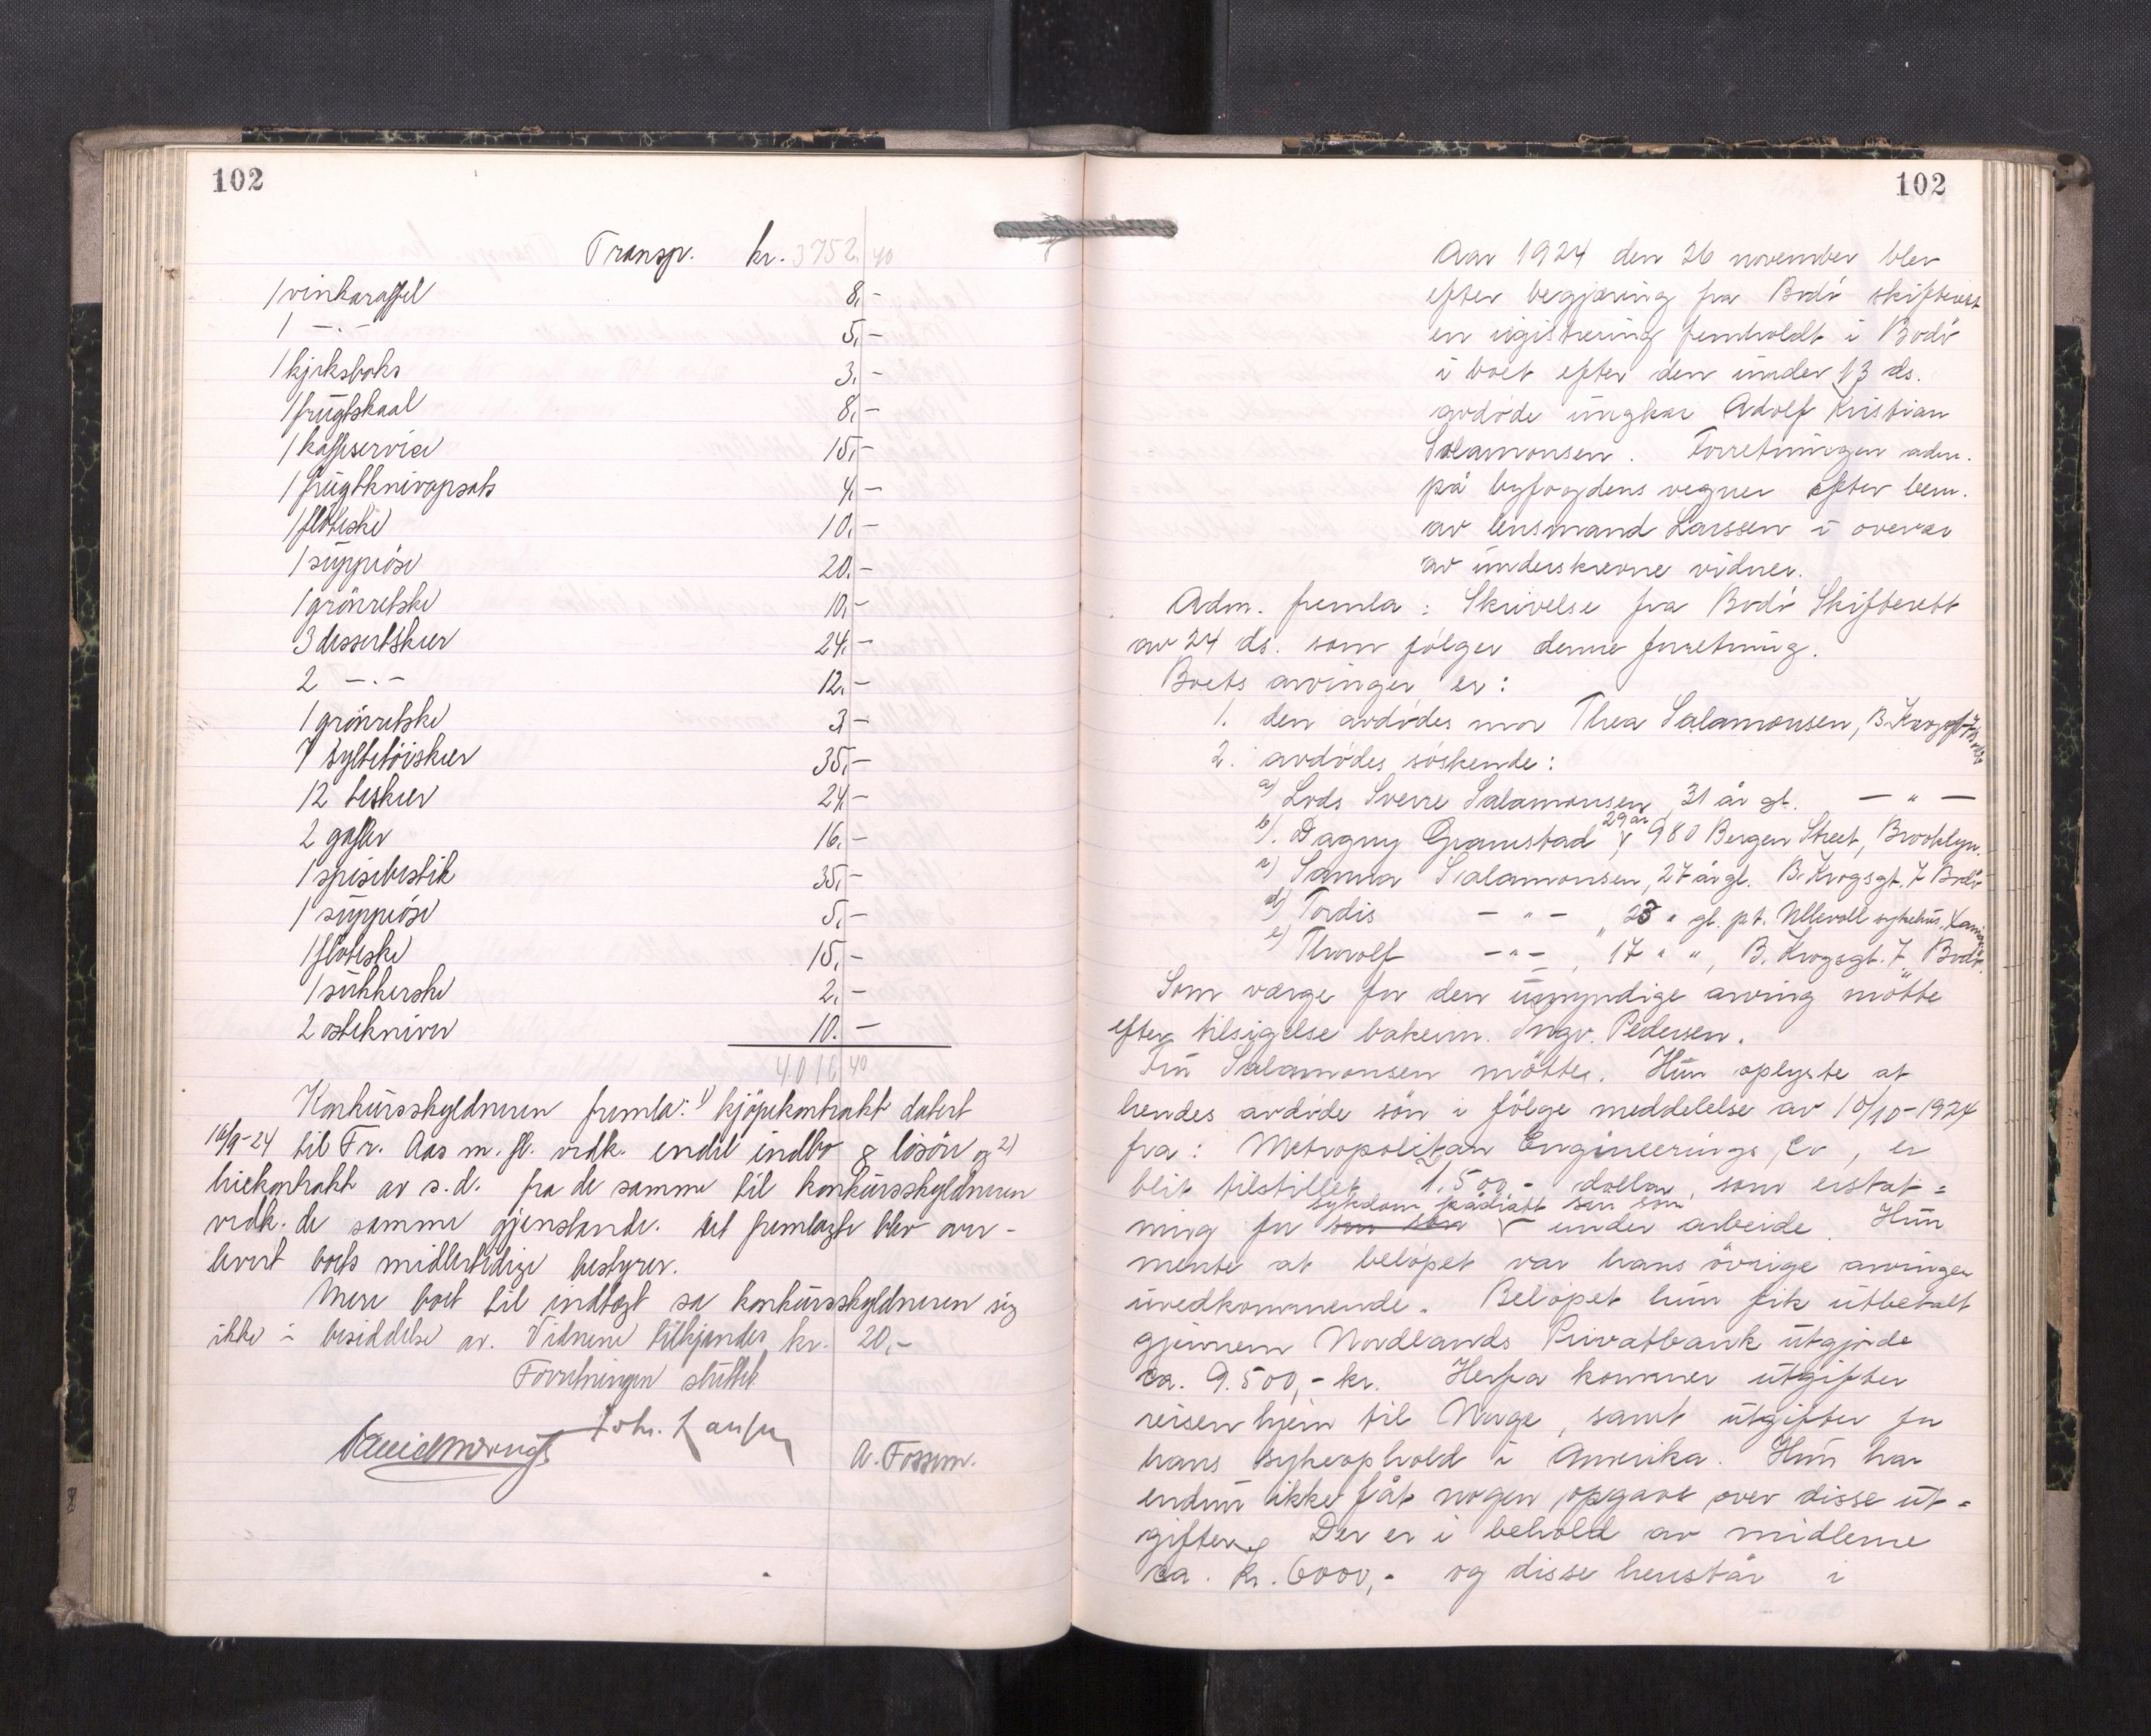 102
Transp. kr. 3752,40
1 vinkaraffel 8,-
1 -.- 5,-
1 kjeksboks 3,-
1 frugtskaal 8,-
1 kaffeservice 15,-
1 frugtknivopsats 4,-
1 fløteske 10,-
1 suppeøse 20,-
1 grønretske 10,-
3 dessertskeer 24,-
2 -.- 12,-
1 grønretske 3-
7 syltetøiskeer 35,-
12 teskeer 24-
2 gafler 16,-
1 spisebestik 35,-
1 suppeøse 5,-
1 fløteske 15,-
1 sukkerske 2,-
2 osteknive 10.-
4016,40
Konkursskyldneren fremla: 1) kjøpekontrakt datert
16/9-24 til Fr. Aas m. fl. vedk. endel indbo & løsøre og 2)
leiekontrakt av s.d. fra de samme til konkursskyldneren
vedk. de samme gjenstande. Det fremlagte blev over-
levert boets midlertidige bestyrer.
Mere boet til indtægt sa konkursskyldneren sig
ikke i besiddelse av. Vidnene tilkjendes kr. 20,-
Forretningen sluttet
Joh. Larssen
A. Fossum.
102
Aar 1924 den 26 november blev
efter begjæring fra Bodø skifterett
en registrering fremholdt i Bodø
i boet efter den under 13 ds.
avdøde ungkar Adolf Kristian
Salamonsen. Forretningen adm.
på byfogdens vegne efter bem.
av lensmand Larssen i overvær
av underskrevne vidner.
Adm. fremla: Skrivelse fra Bodø Skifterett
av 24 ds. som følger denne forretning.
Boets arvinger er:
1. den avdødes mor Thea Salamonsen, B. Krogsgt. 7 Bodø
2. avdødes søskende:
a) Lods Sverre Salamonsen, 31 år gl. - " -
b). Dagny Gramstad, 29 år 980 Bergen Street, Brooklyn.
c) Sanna Salamonsen, 27 år gl. B. Krogsgt. 7 Bodø
d) Tordis - " - , 23 " gl. pt. Ullevoll sykehus,
e) Thorolf - " - , 17 " ", B. Krogsgt. 7, Bodø.
Som verge for den umyndige arving møtte
efter tilsigelse bakerm. Ingv. Pedersen.
Fru Salamonsen møtte. Hun oplyste at
hendes avdøde søn i følge meddelelse av 10/10-1924
fra: Metropolitan Engineerings Co, er
blit tilstillet 1.500,- dollar, som erstat=
ning for sin søn sykdom pådratt sin søn under arbeide. Hun
mente at beløpet var hans øvrige arvinger
uvedkommende. Beløpet hun fik utbetalt
gjennem Nordlands Privatbank utgjorde
ca. 9.500,- kr. Herfra kommer utgifter
reisen hjem til Norge, samt utgifter for
hans sykeophold i Amerika. Hun har
endnu ikke fåt nogen opgave over disse ut=
gifter. Der er i behold av midlerne
ca. kr. 6000,- og disse henstår i